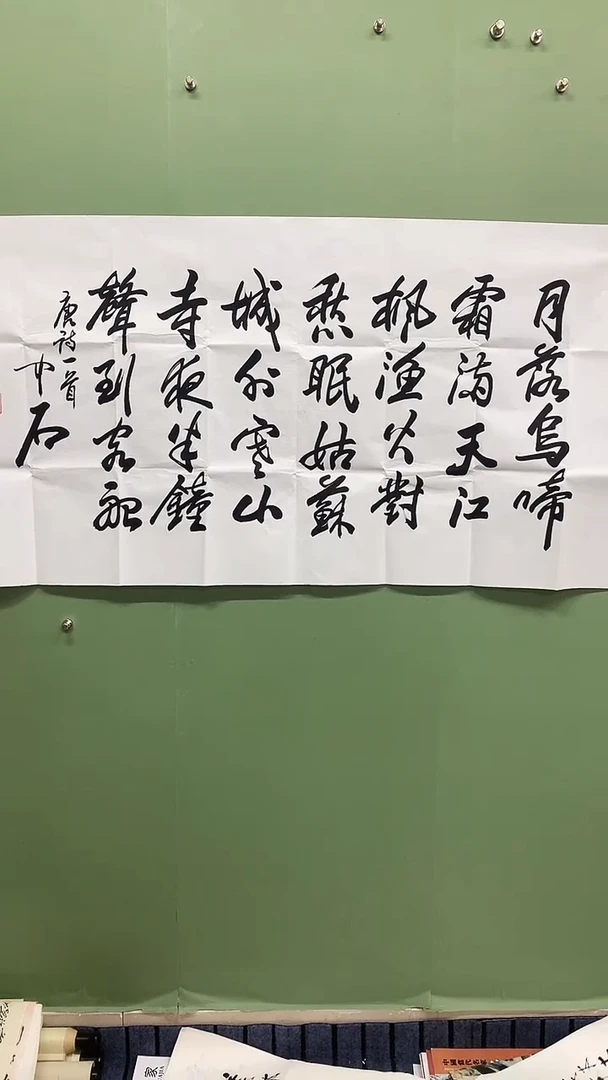 月落烏啼
霜滿天江
楓漁火對
愁眠姑蘇
城外寒山
寺夜半鐘
聲到客船
唐詩一首
中石